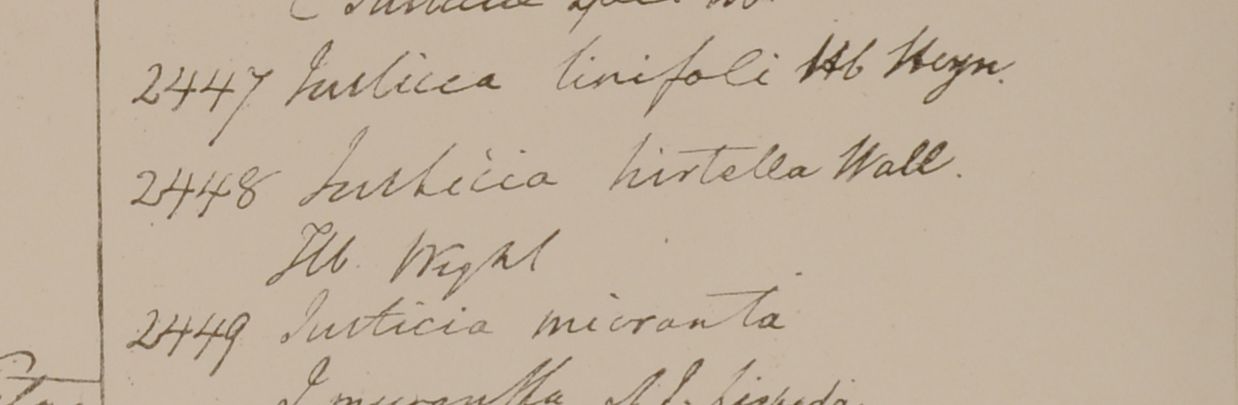 2447 Justicia linifoli Hb Heyn.
2448 Justicia hirtella Wall.
Hb. Wight
2449 Justicia micranta